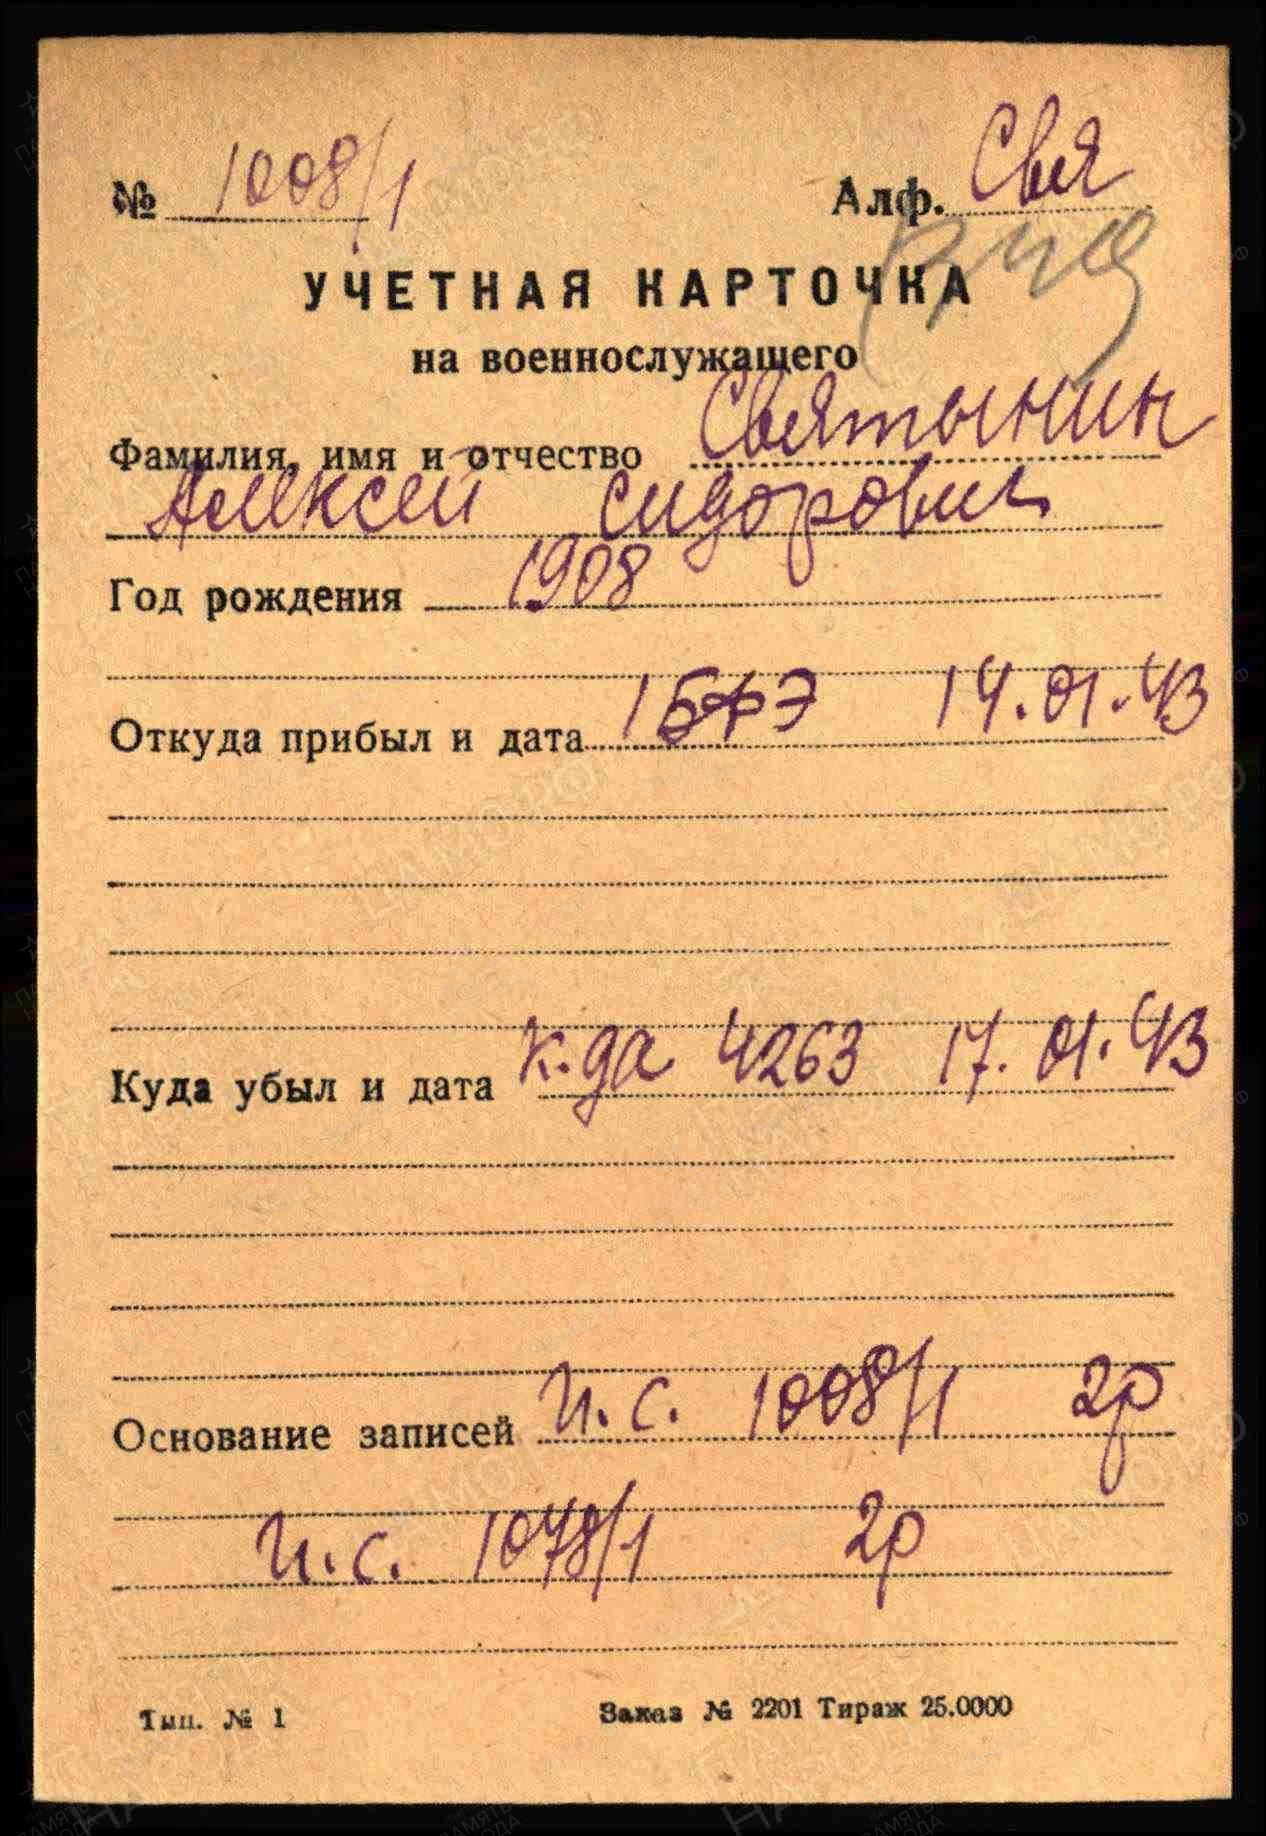 № 1008/1 Алф. Свя
УЧЕТНАЯ КАРТОЧКА
на военнослужащего
Фамилия, имя и отчество Святынин
Алексей Сидорович
Год рождения 1908
Откуда прибыл и дата 14.01.43
Куда убыл и дата к-да 4263 17.01.43
Основание записей и.с. 1008/1 2р
и.с. 1078/1 2р
Тип. № 1 Заказ № 2201 Тираж 25.0000